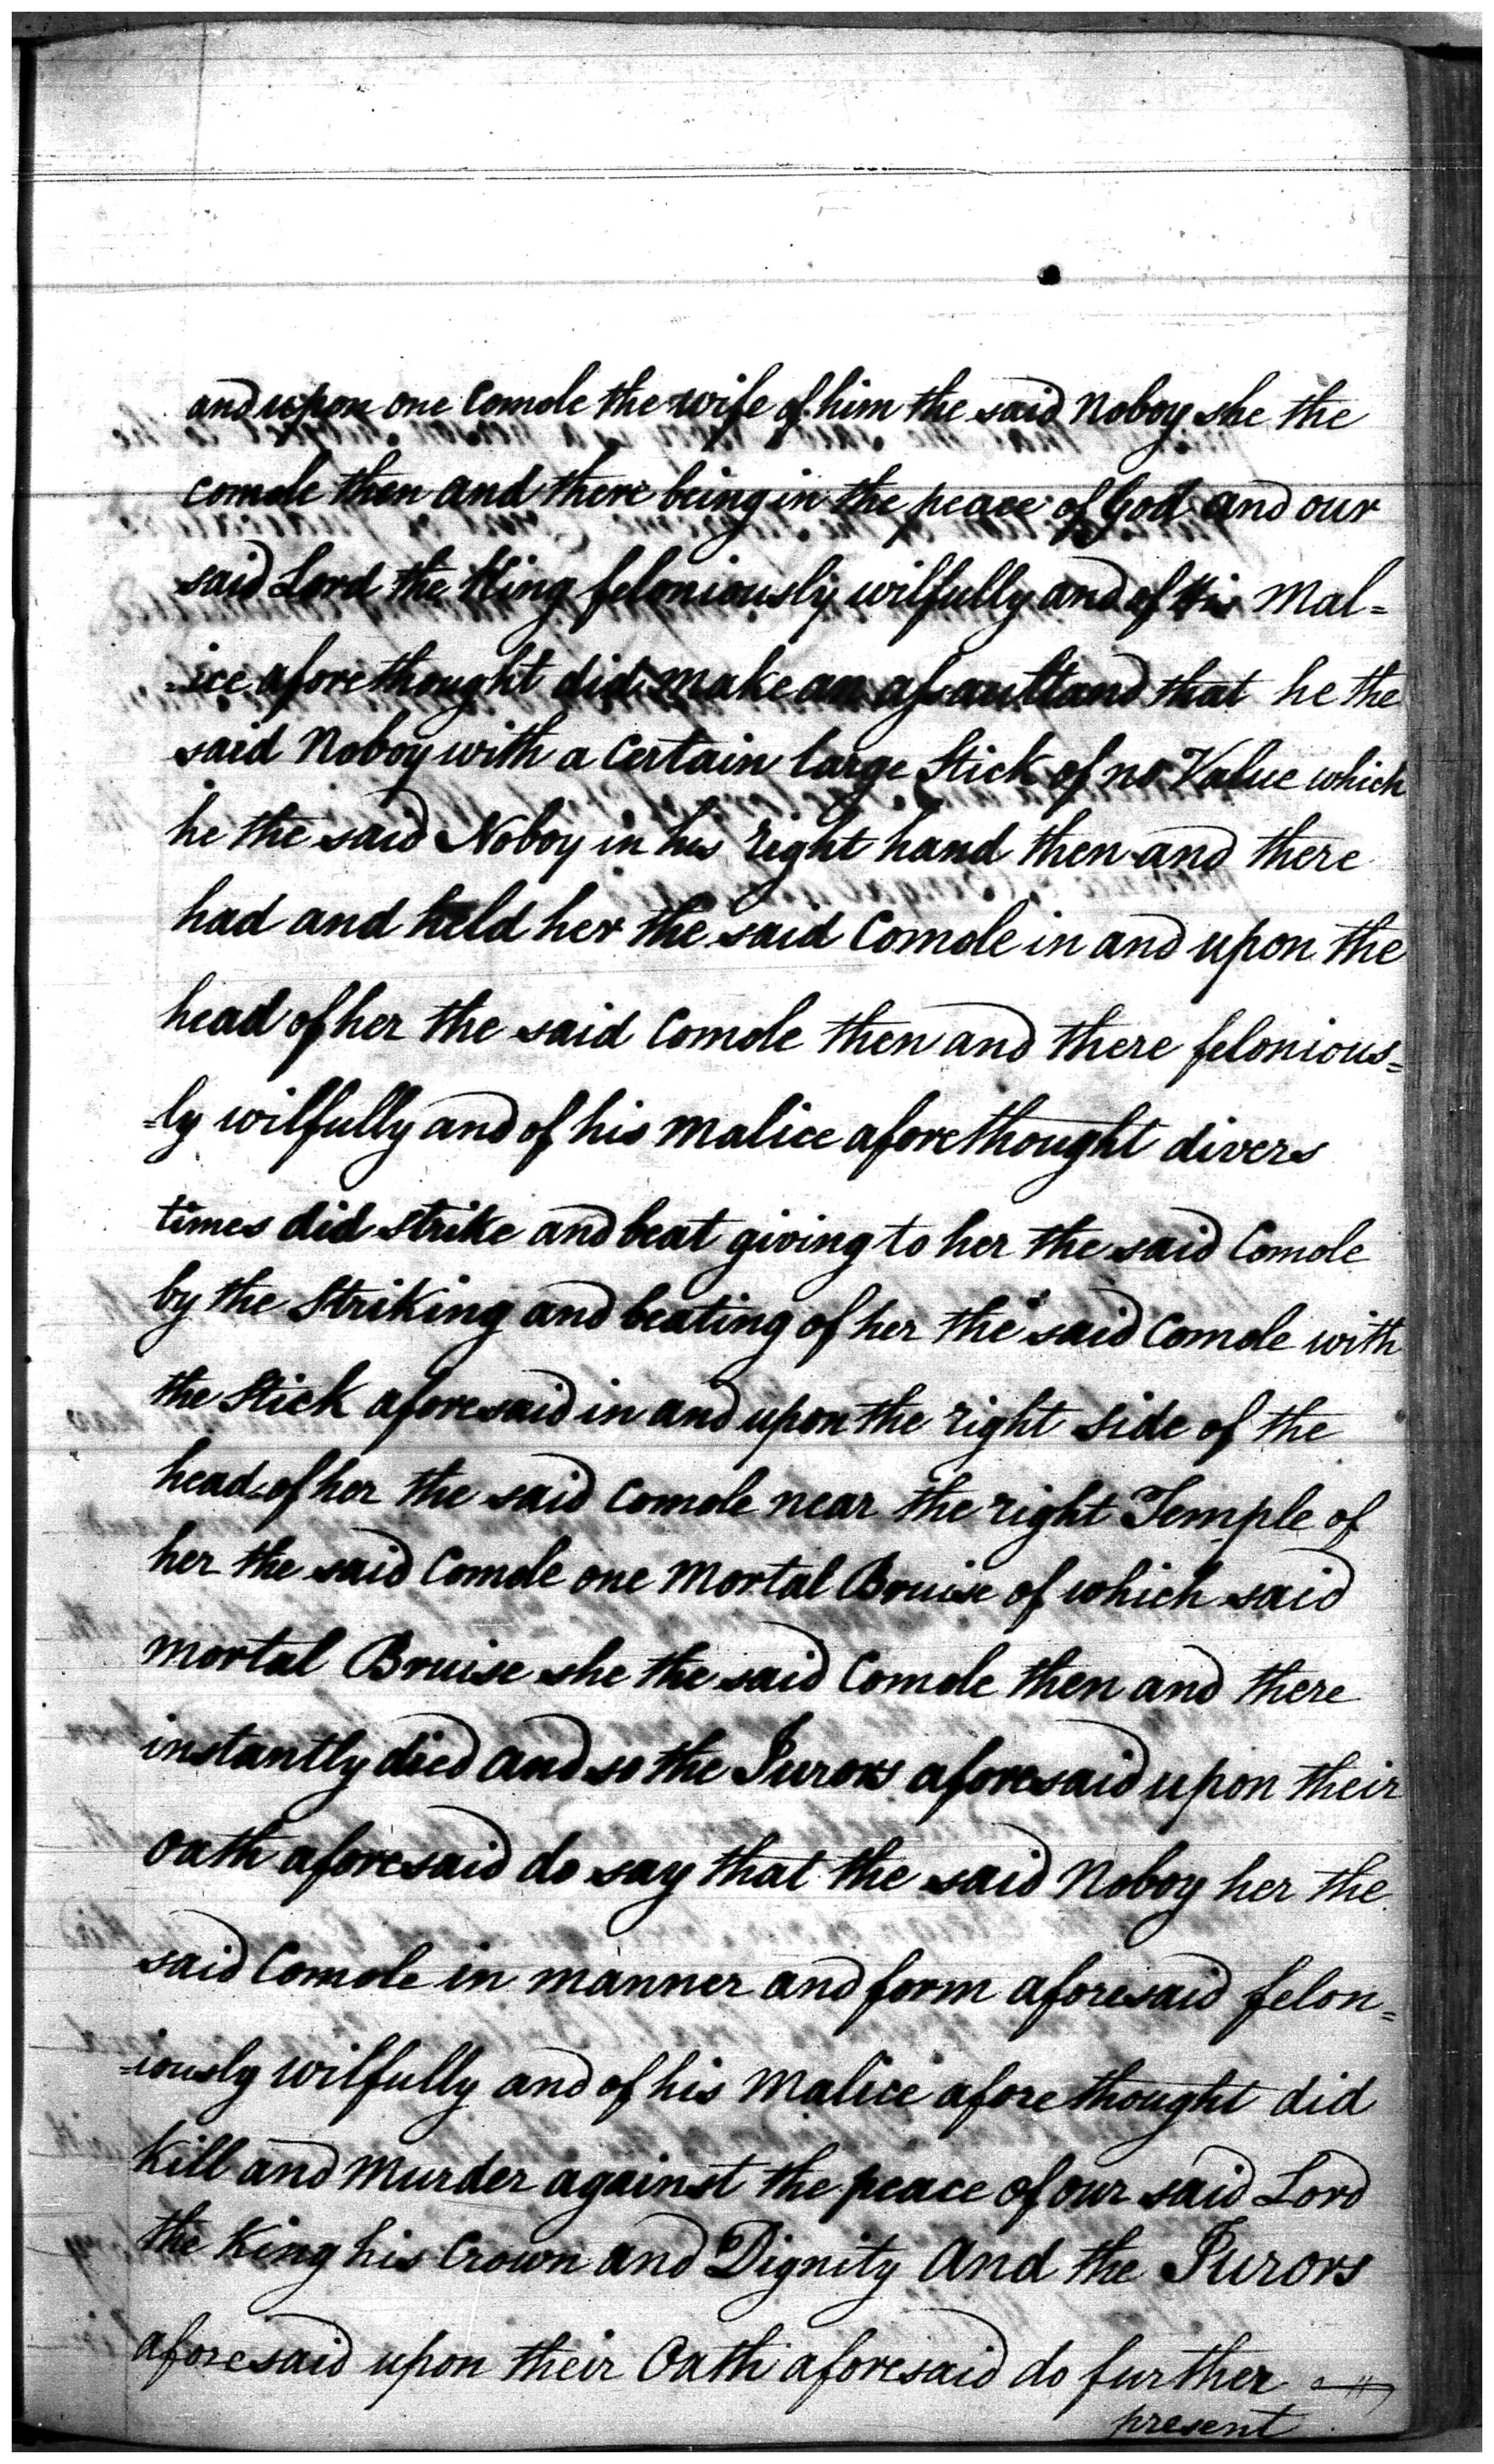 and upon one Comole the wife of him the said Noboy she the
Comole then and there being in the peace of God and our
said Lord the King feloniously wilfully and of his Mal=
=ice aforethought did make an assault and that he the
said Noboy with a Certain large Stick of no Value which
he the said Noboy in his right hand then and there
had and held her the said Comole in and upon the
head of her the said Comole then and there felonious=
=ly wilfully and of his Malice aforethought divers
times did strike and beat giving to her the said Comole
by the Striking and beating of her the said Comole with
the Stick aforesaid in and upon the right side of the
head of her the said Comole near the right Temple of
her the said Comole one Mortal Bruise of which said
Mortal Bruise she the said Comole then and there
instantly died and so the Jurors aforesaid upon their
Oath aforesaid do say that the said Noboy her the
said Comole in manner and form aforesaid felon=
=iously wilfully and of his Malice afore thought did
Kill and Murder against the peace of our said Lord
the King his Crown and Dignity And the Jurors
aforesaid upon their Oath aforesaid do further
present